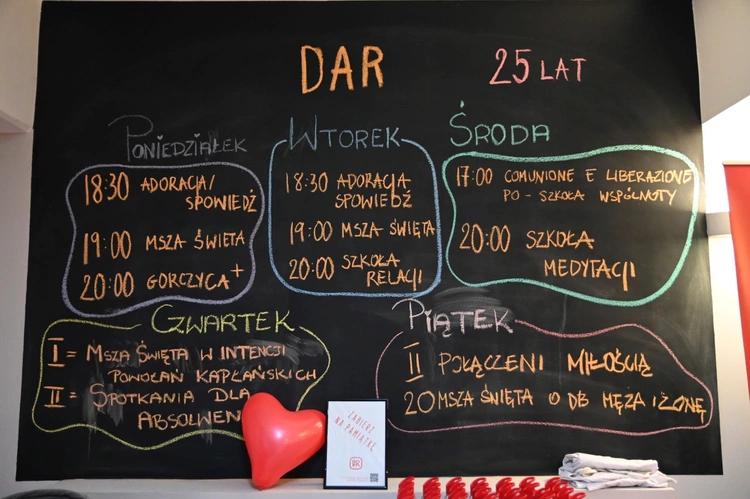 DAR
25 LAT
PONIEDZIAŁEK
18:30 ADORACJA/
SPOWIEDŹ
19:00 MSZA ŚWIĘTA
20:00 GORCZYCA+
WTOREK
18:30 ADORACJA
SPOWIEDŹ
19:00 MSZA ŚWIĘTA
20:00 SZKOŁA
RELACJI
ŚRODA
17:00 COMUNIONE E LIBERAZIONE
PO - SZKOŁA WSPÓLNOTY
20:00 SZKOŁA
MEDYTACJI
CZWARTEK
I = MSZA ŚWIĘTA W INTENCJI
POWOŁAŃ KAPŁAŃSKICH
II = SPOTKANIA DLA
ABSOLWEN
PIĄTEK
II POŁĄCZENI MIŁOŚCIĄ
20 MSZA ŚWIĘTA O DB MĘŻA I ŻONĘ
ZABIERZ
NA PAMIĄTKĘ